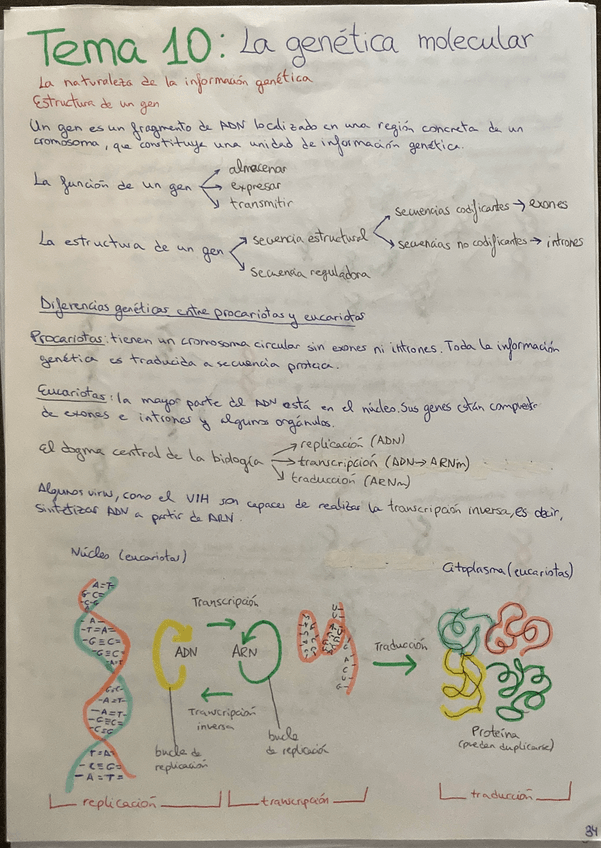 Tema 10: La genética molecular
La naturaleza de la información genética
Estructura de un gen
Un gen es un fragmento de ADN localizado en una región concreta de un
cromosoma, que constituye una unidad de información genética.
La función de un gen → almacenar
→ expresar
→ transmitir
La estructura de un gen → secuencia estructural → secuencias codificantes → exones
→ secuencias no codificantes → intrones
→ secuencia reguladora
Diferencias genéticas entre procariotas y eucariotas
Procariotas: tienen un cromosoma circular sin exones ni intrones. Toda la información
genética es traducida a secuencia proteica.
Eucariotas: la mayor parte del ADN está en el núcleo. Sus genes están compuestos
de exones e intrones y algunos orgánulos.
El dogma central de la biología → replicación (ADN)
→ transcripción (ADN → ARNm)
→ traducción (ARNm)
Algunos virus, como el VIH son capaces de realizar la transcripción inversa, es decir,
sintetizar ADN a partir de ARN.
Núcleo (eucariotas)
Citoplasma (eucariotas)
Transcripción
ADN
ARN
Traducción
Transcripción
inversa
bucle de
replicación
bucle
de replicación
Proteína
(pueden duplicarse)
replicación
transcripción
traducción
84